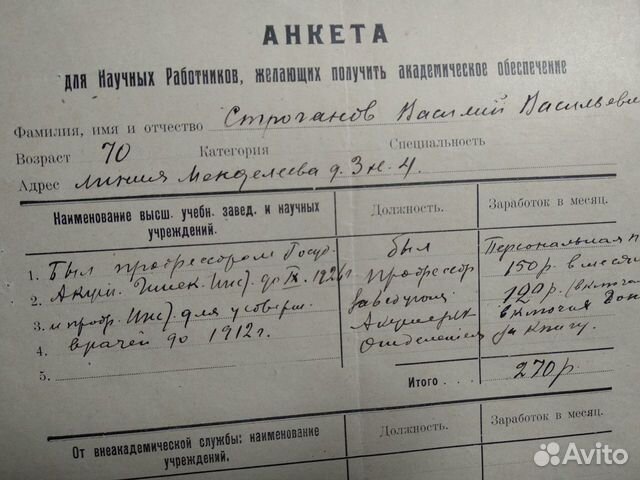 АНКЕТА
для Научных Работников, желающих получить академическое обеспечение
Фамилия, имя и отчество Строганов Василий Васильеви
Возраст 70 Категория Специальность
Адрес линия Менделеева д. 3 к. 4.
Наименование высш. учебн. завед. и научных учреждений. Должность. Заработок в месяц.
1. Был профессором Госуд. был Персональная п
2. Акуш. Гинек. Инст. до IX. 1926 г профессор 150 р. в месяц
3. и проф. Инст. для усоверш. заведующ. 120 р. (включ
4. врачей до 1912 г. Акушерск включая
5. Отделением за книгу.
Итого . . . 270 р.
От внеакадемической службы: наименование учреждений. Должность. Заработок в месяц.
Avito